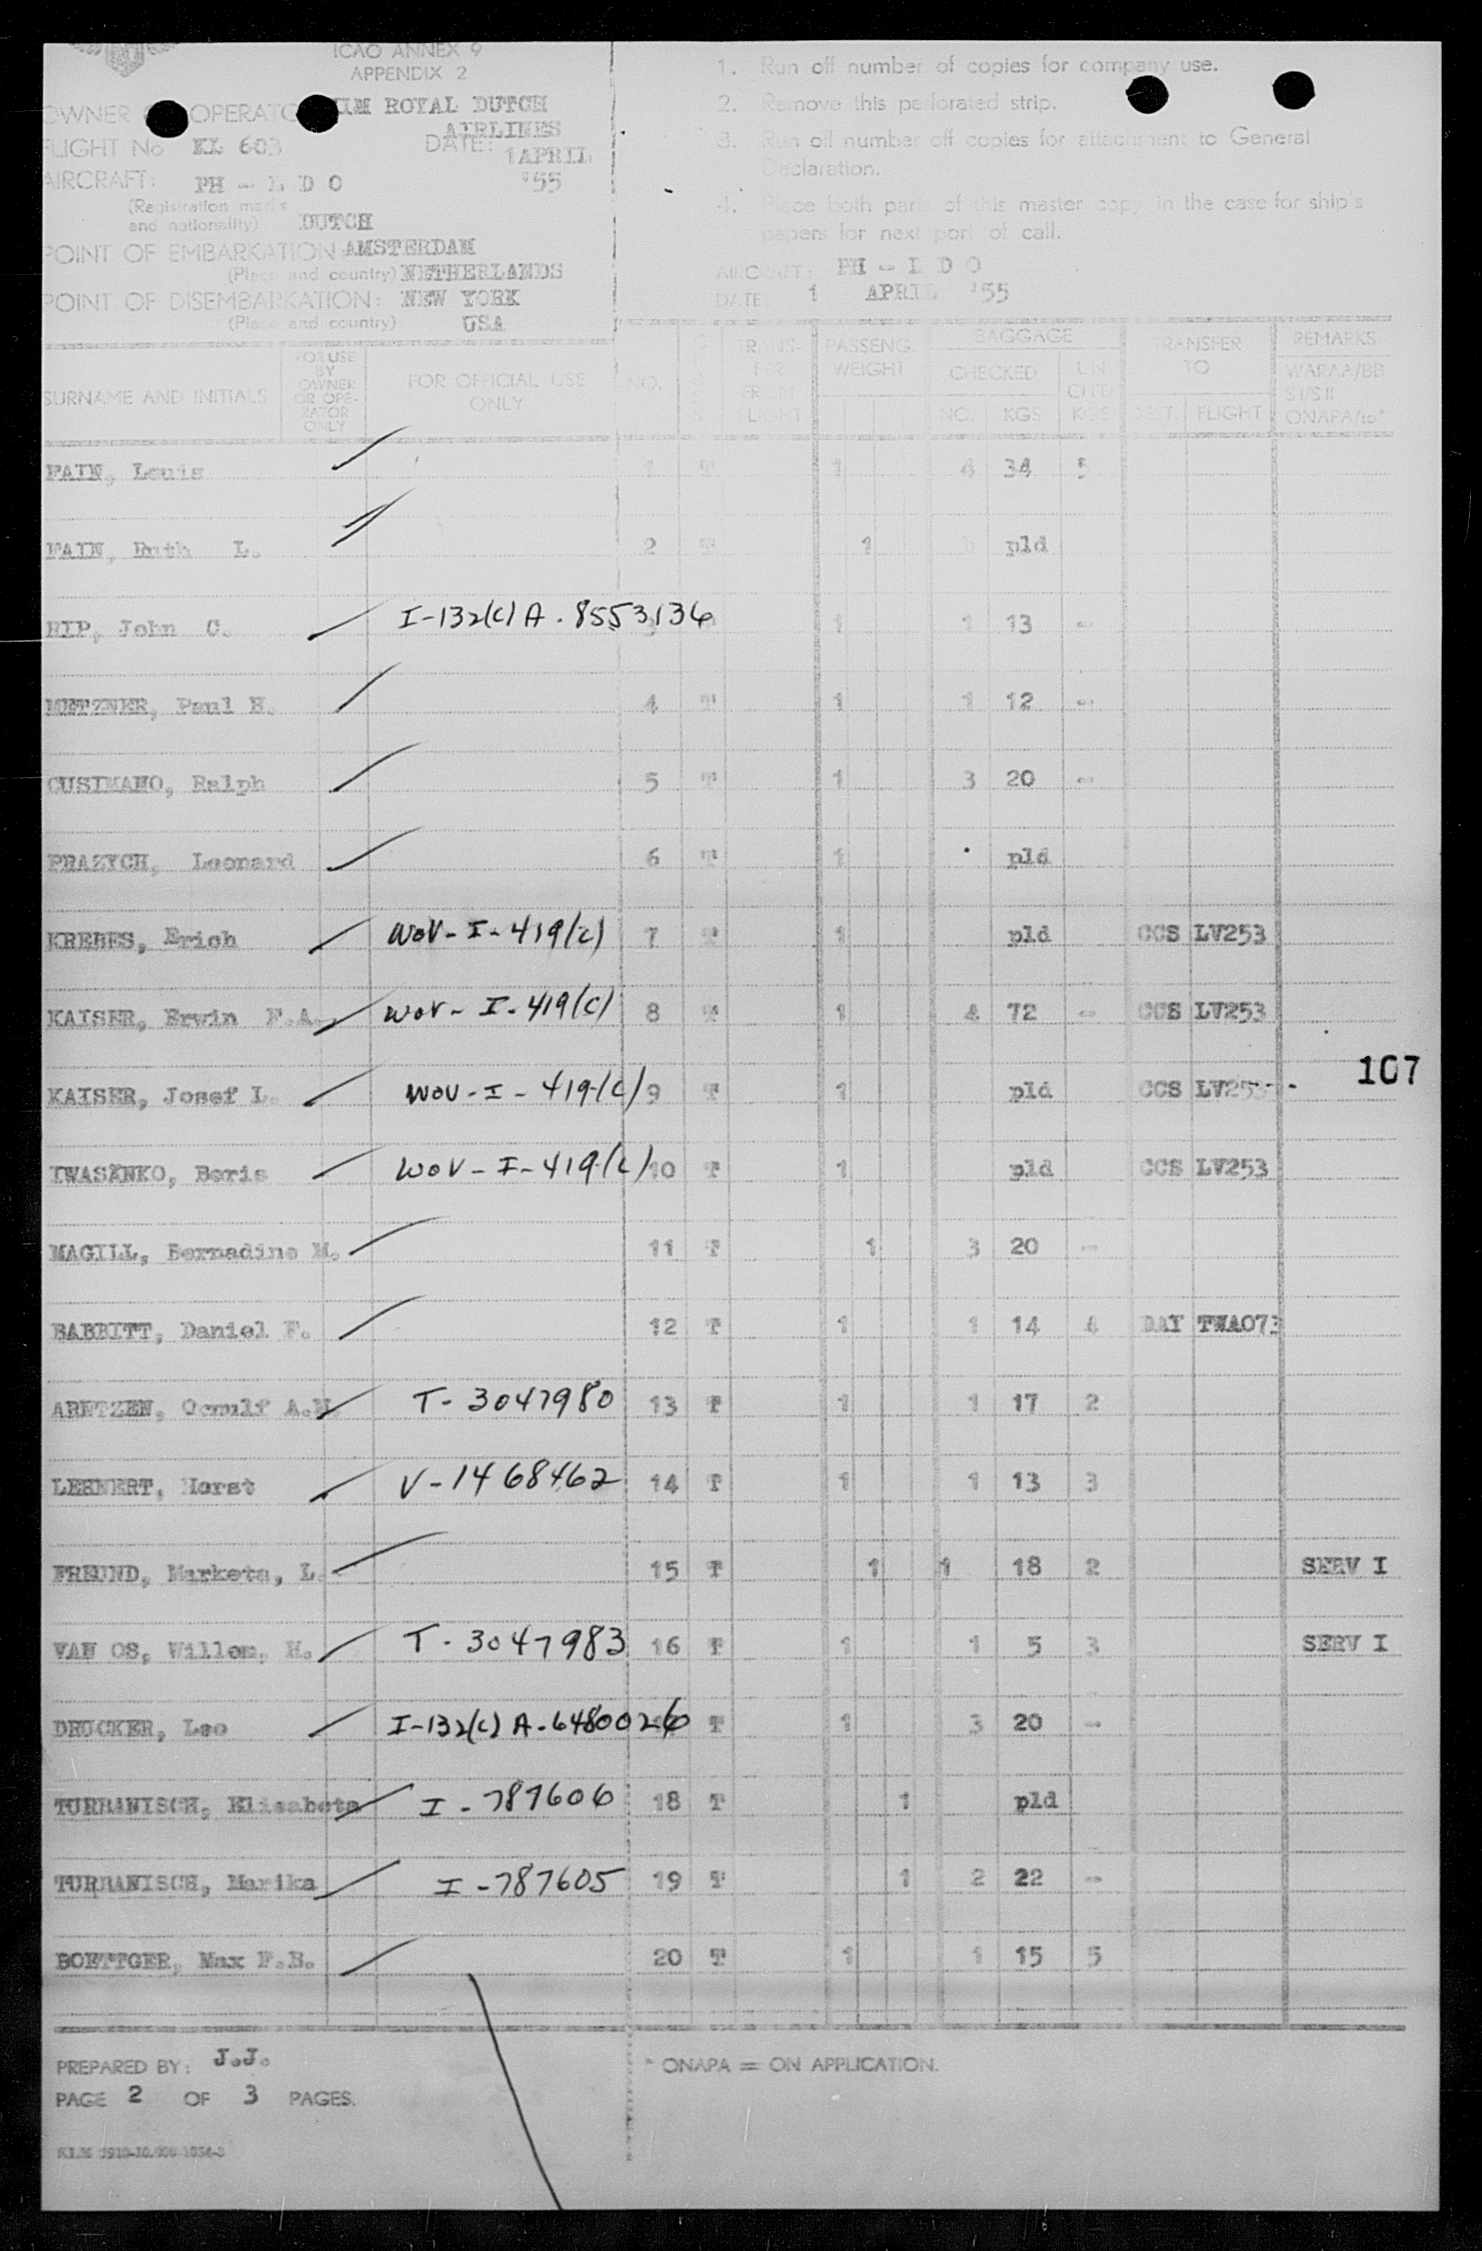 ICAO ANNEX 9
APPENDIX 2
OWNER OPERATO KLM ROYAL DUTCH
AIRLINES
FLIGHT No KL 603 DATE: 1 APRIL
AIRCRAFT: PH - L D O '55
(Registration marks
and nationality) DUTCH
POINT OF EMBARKATION: AMSTERDAM
(Place and country) NETHERLANDS
POINT OF DISEMBARKATION: NEW YORK
(Place and country) USA
1. Run off number of copies for company use.
2. Remove this perforated strip.
3. Run off number off copies for attachment to General
Declaration.
4. Place both parts of this master copy in the case for ship's
papers for next port of call.
AIRCRAFT: PH - L D O
DATE 1 APRIL '55
SURNAME AND INITIALS
FOR USE
BY
OWNER
OR OPE-
RATOR
ONLY
FOR OFFICIAL USE
ONLY
NO.
TRANS-
FER
FROM
FLIGHT
PASSENG.
WEIGHT
BAGGAGE
CHECKED
NO. KGS
UN
CH'D
KGS
TRANSFER
TO
DEST. FLIGHT
REMARKS
WARAA/BB
SI/SII
ONAPA/to*
FAIN, Louis 1 T 1 4 34 5
FAIN, Ruth L. 2 T 1 pld
HIP, John C. I-132(c) A-8553136 3 T 1 1 13 -
METZNER, Paul H. 4 T 1 1 12 -
CUSIMANO, Ralph 5 T 1 3 20 -
PRAZYCH, Leonard 6 T 1 pld
KREBES, Erich WOV-I-419(c) 7 T 1 pld CCS LV253
KAISER, Erwin F.A. WOV-I-419(c) 8 T 1 4 72 - CCS LV253
KAISER, Josef L. WOV-I-419(c) 9 T 1 pld CCS LV253
107
IWASENKO, Boris WOV-I-419(c) 10 T 1 pld CCS LV253
MAGILL, Bernadine M. 11 T 1 3 20 -
BABBITT, Daniel F. 12 T 1 1 14 4 DAY TWA073
ARNTZEN, A.M. T-3047980 13 T 1 1 17 2
LEHNERT, Horst V-1468462 14 T 1 1 13 3
FREUND, Marketa, L. 15 T 1 1 18 2 SERV I
VAN OS, Willem, H. T-3047983 16 T 1 1 5 3 SERV I
DRUCKER, Leo I-132(c) A-6480026 T 1 3 20 -
TURRANISCH, Elisabeta I-787606 18 T 1 pld
TURRANISCH, Marika I-787605 19 T 1 2 22 -
BOETTGER, Max F.B. 20 T 1 1 15 5
PREPARED BY: J.J.
PAGE 2 OF 3 PAGES.
* ONAPA = ON APPLICATION.